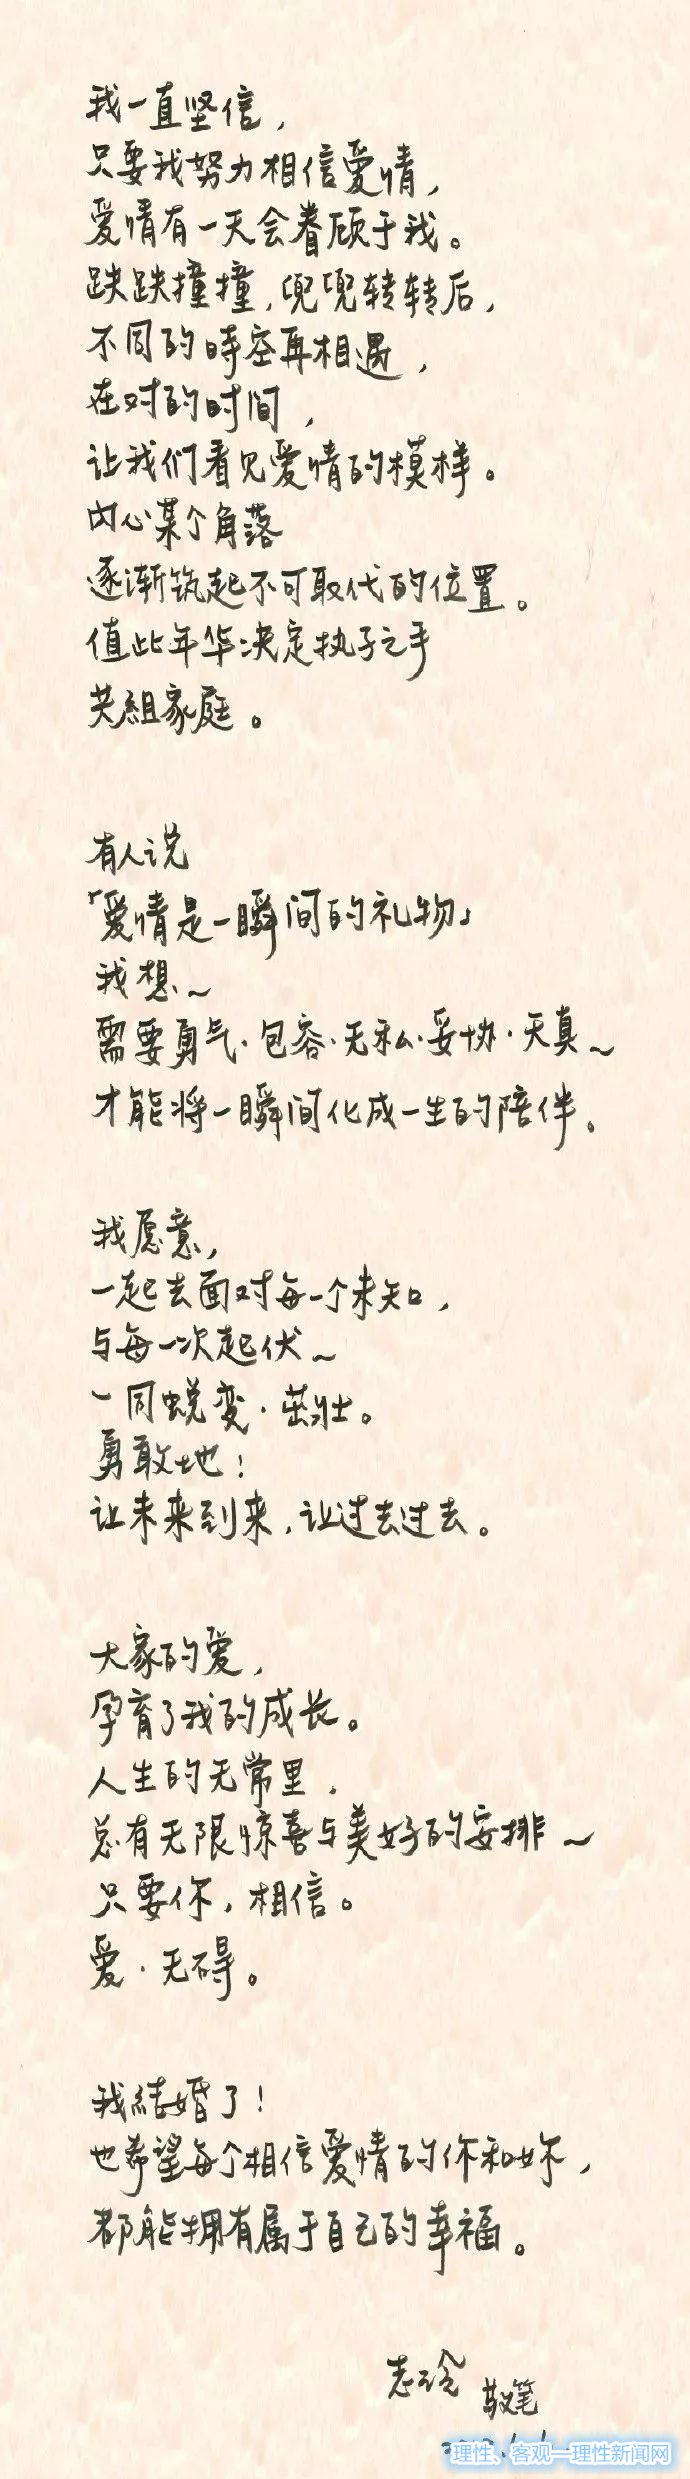 我一直坚信，
只要我努力相信爱情，
爱情有一天会眷顾于我。
跌跌撞撞，兜兜转转后，
不同的時空再相遇，
在对的时间，
让我们看见爱情的模样。
内心某个角落
逐渐筑起不可取代的位置。
值此年华决定执子之手
共組家庭。
有人说
「爱情是一瞬间的礼物」
我想～
需要勇气·包容·无私·妥协·天真～
才能将一瞬间化成一生的陪伴。
我愿意，
一起去面对每一个未知，
与每一次起伏～
一同蜕变·茁壮。
勇敢地！
让未来到来，让过去过去。
大家的爱，
孕育了我的成长。
人生的无常里，
总有无限惊喜与美好的安排～
只要你，相信。
爱·无碍。
我結婚了！
也希望每个相信爱情的你和妳，
都能拥有属于自己的幸福。
志玲 敬笔
理性、客观—理性新闻网